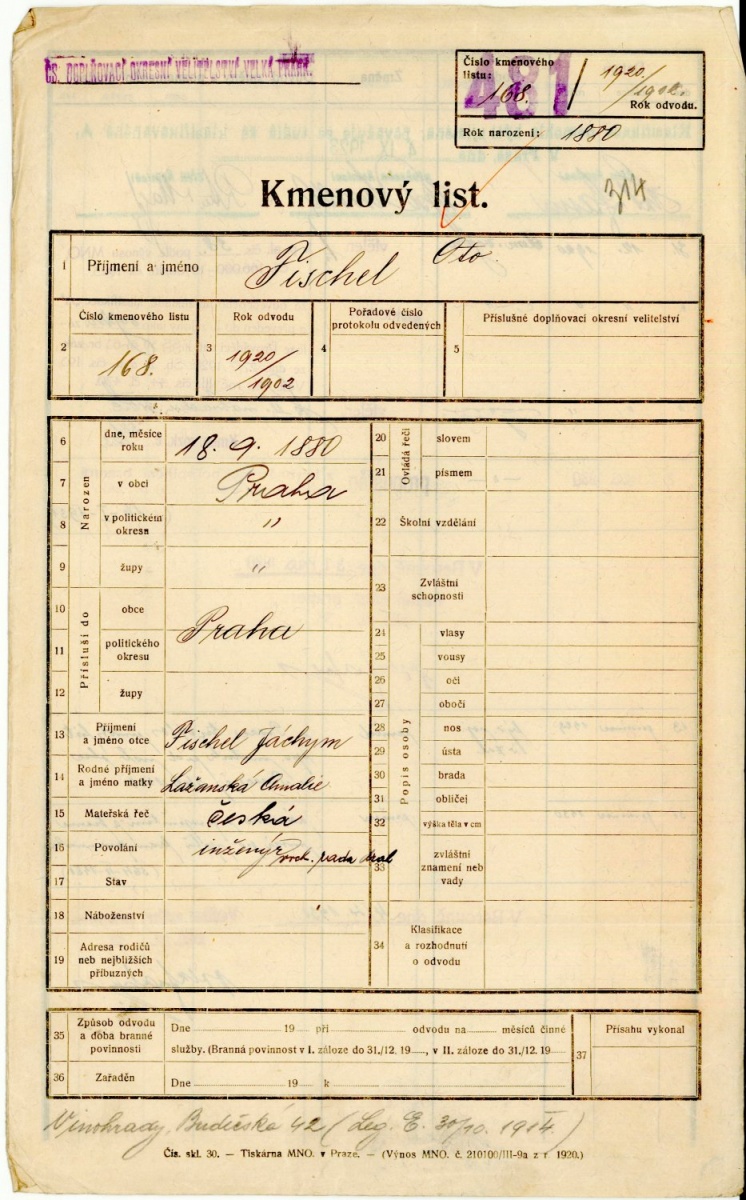 ČS. DOPLŇOVACÍ OKRESNÍ VELITELSTVÍ VELKÁ PRAHA.
Číslo kmenového
listu:
481
168. / 1920/1902
Rok odvodu.
Rok narození: 1880
Kmenový list.
314
1 Příjmení a jméno Fischel Oto
Číslo kmenového listu
2 168.
Rok odvodu
3 1920/1902
Pořadové číslo
protokolu odvedených
4
Příslušné doplňovací okresní velitelství
5
Narozen
6 dne, měsíce
roku 18. 9. 1880
7 v obci Praha
8 v politickém
okresu "
9 župy "
Přísluší do
10 obce Praha
11 politického
okresu
12 župy
13 Příjmení
a jméno otce Fischel Jáchym
14 Rodné příjmení
a jméno matky Lažanská Amalie
15 Mateřská řeč česká
16 Povolání inženýr rada
17 Stav
18 Náboženství
19 Adresa rodičů
neb nejbližších
příbuzných
Ovládá řeči
20 slovem
21 písmem
22 Školní vzdělání
23 Zvláštní
schopnosti
Popis osoby
24 vlasy
25 vousy
26 oči
27 obočí
28 nos
29 ústa
30 brada
31 obličej
32 výška těla v cm
33 zvláštní
znamení neb
vady
34 Klasifikace
a rozhodnutí
o odvodu
35 Způsob odvodu
a doba branné
povinnosti
Dne 19 při odvodu na měsíců činné
služby. (Branná povinnost v I. záloze do 31./12. 19 , v II. záloze do 31./12. 19
36 Zařaděn
Dne 19 k
37 Přísahu vykonal
Vinohrady, Budečská 42 (Leg. E. 30/10. 1914.)
Čís. skl. 30. – Tiskárna MNO. v Praze. – (Výnos MNO. č. 210100/III-9a z r. 1920.)